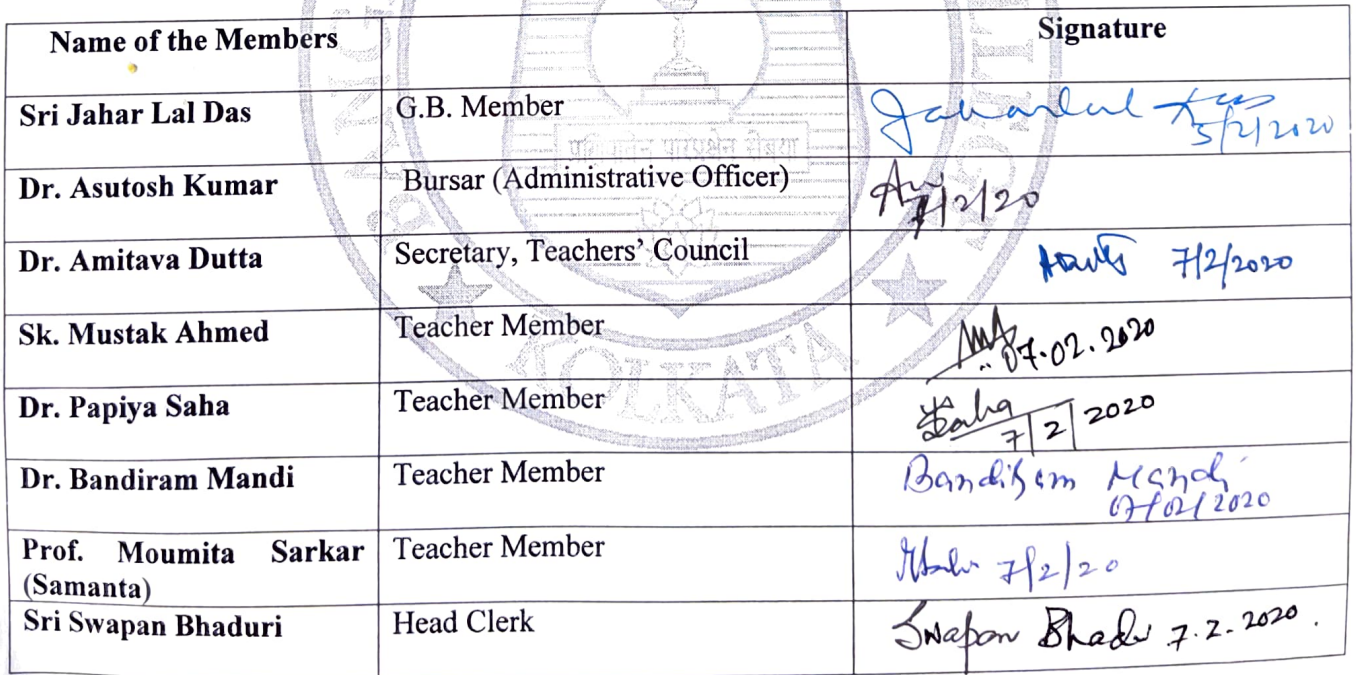 Name of the Members Signature
Sri Jahar Lal Das G.B. Member Jaharlal Das
5/2/2020
Dr. Asutosh Kumar Bursar (Administrative Officer) 7/2/20
Dr. Amitava Dutta Secretary, Teachers' Council 7/2/2020
Sk. Mustak Ahmed Teacher Member 07.02.2020
Dr. Papiya Saha Teacher Member Saha
7/2/2020
Dr. Bandiram Mandi Teacher Member Bandiram Mandi
07/02/2020
Prof. Moumita Sarkar Teacher Member 7/2/20
(Samanta)
Sri Swapan Bhaduri Head Clerk Swapan Bhadu 7.2.2020.
KOLKATA